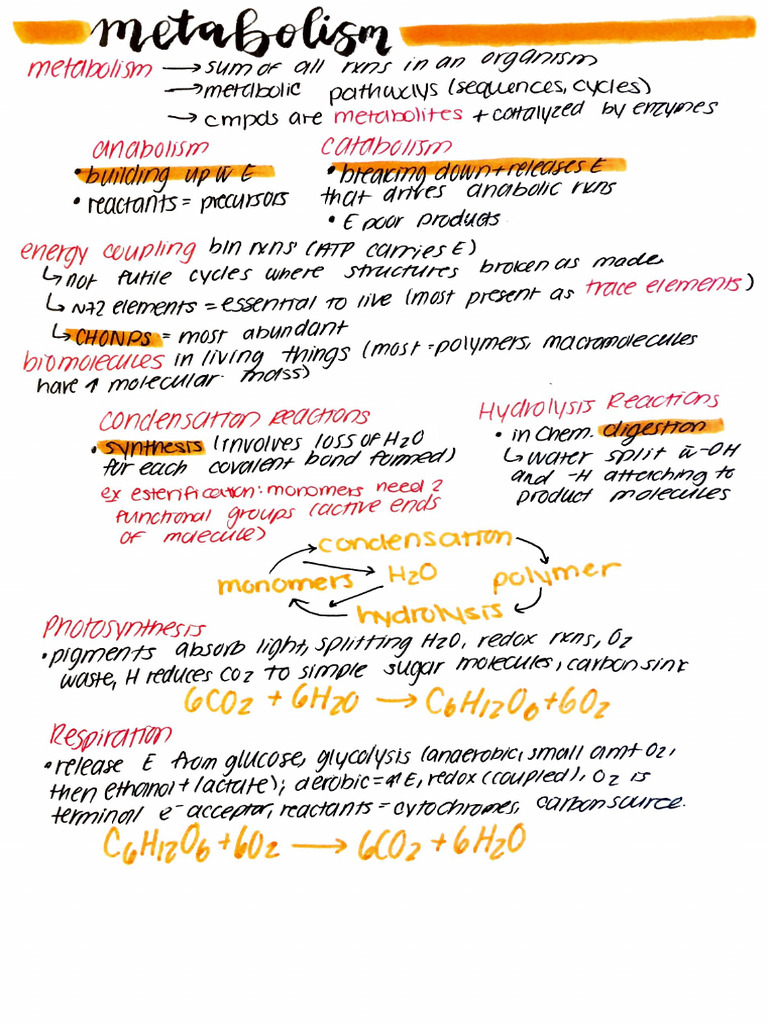 metabolism
metabolism → sum of all rxns in an organism
→ metabolic pathways (sequences, cycles)
→ cmpds are metabolites + catalyzed by enzymes
anabolism
• building up w̄ E
• reactants = precursors
catabolism
• breaking down + releases E
that drives anabolic rxns
• E poor products
energy coupling btn rxns (ATP carries E)
↳ not futile cycles where structures broken as made
↳ ~72 elements = essential to live (most present as trace elements)
↳ CHONPS = most abundant
biomolecules in living things (most = polymers, macromolecules
have ↑ molecular mass)
Condensation Reactions
• synthesis (involves loss of H2O
for each covalent bond formed)
ex esterification: monomers need 2
functional groups (active ends
of molecule)
Hydrolysis Reactions
• in chem. digestion
↳ water split w̄ -OH
and -H attaching to
product molecules
condensation
monomers → H2O polymer
hydrolysis
Photosynthesis
• pigments absorb light, splitting H2O, redox rxns, O2
waste, H reduces CO2 to simple sugar molecules, carbon sink
6CO2 + 6H2O → C6H12O6 + 6O2
Respiration
• release E from glucose, glycolysis (anaerobic, small amt O2,
then ethanol + lactate); aerobic = ↑E, redox (coupled), O2 is
terminal e⁻ acceptor, reactants = cytochromes, carbon source.
C6H12O6 + 6O2 → 6CO2 + 6H2O